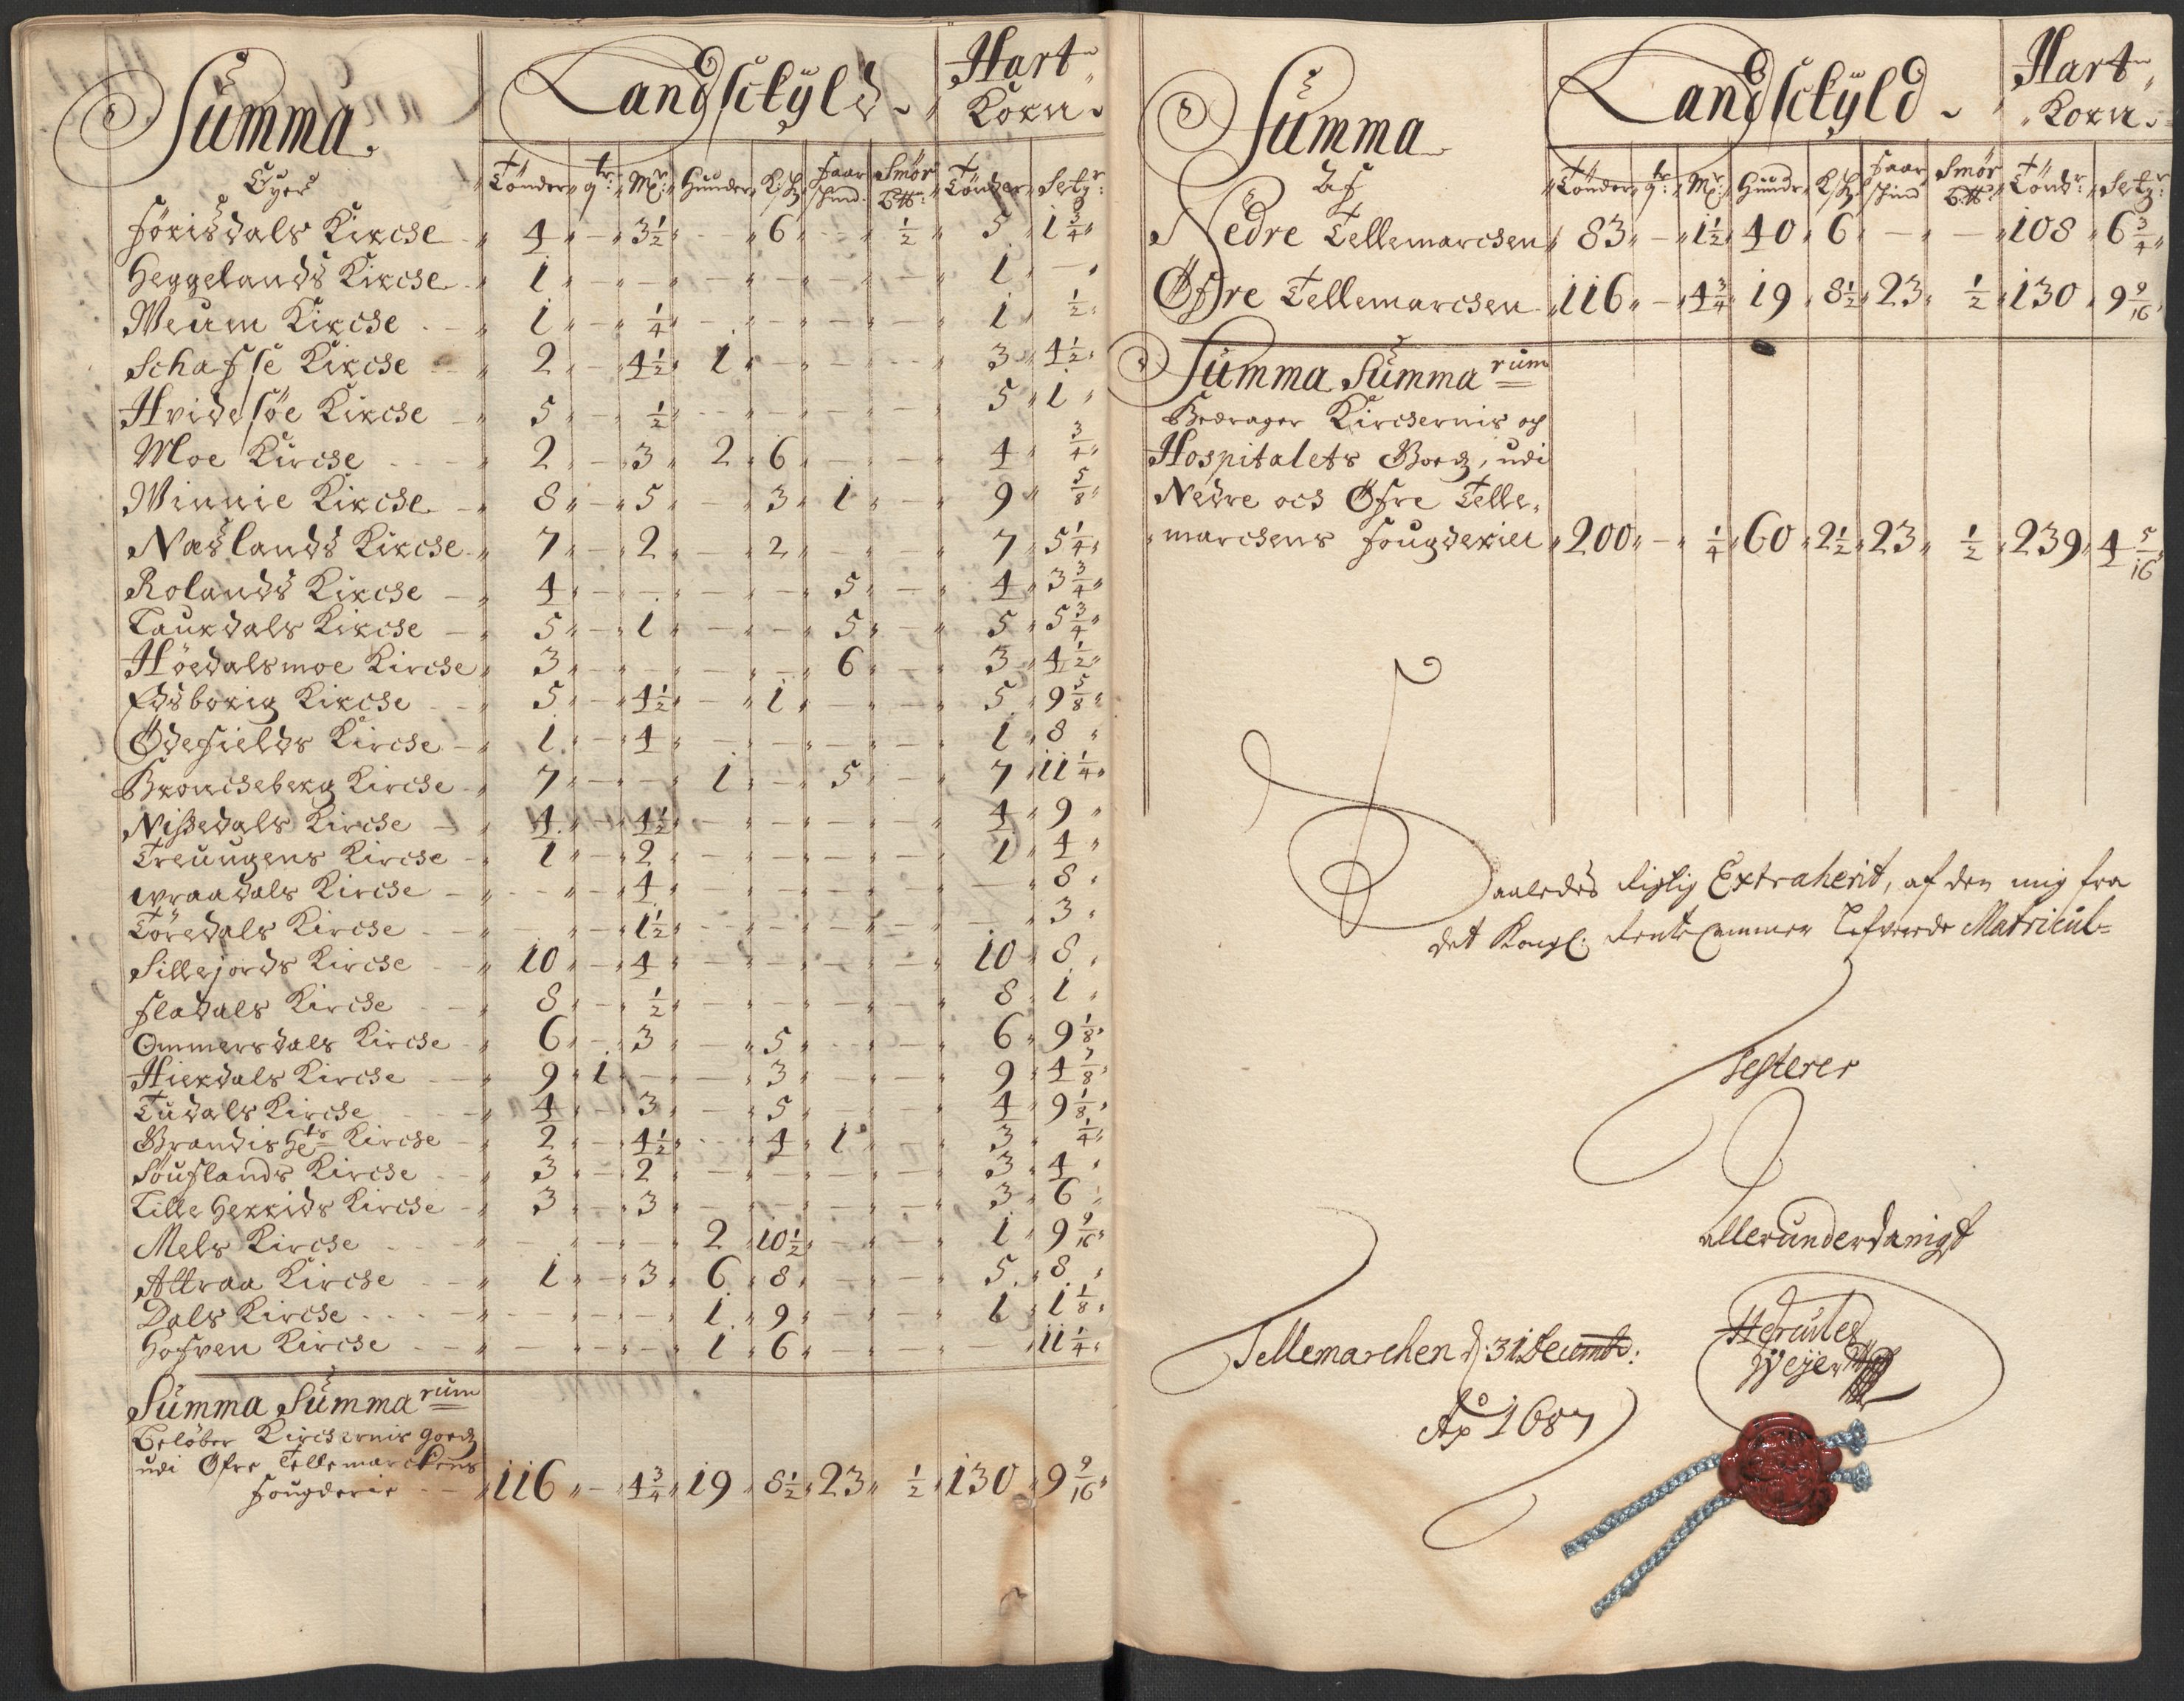 Summa Landschyld Hart
Ofver Korn
Tönder qr: Mr: Hunder K:ß faar schind Smör B:tt: Tönder Setgr:
Förisdals Kirche 4 - 3½ - 6 - ½ 5 1¾
Heggelands Kirche 1 - - - - - - 1 -
Weum Kirche 1 - ¼ - - - - 1 ½
Schafse Kirche 2 - 4½ 1 - - - 3 4½
Hvidesöe Kirche 5 - ½ - - - - 5 1
Moe Kirche 2 - 3 2 6 - - 4 ¾
Winnie Kirche 8 - 5 - 3 1 - 9 5/8
Næslands Kirche 7 - 2 - 2 - - 7 5¼
Rolands Kirche 4 - - - - 5 - 4 3¾
Laurdals Kirche 5 - 1 - - 5 - 5 5¾
Höedalsmoe Kirche 3 - - - - 6 - 3 4½
Edsborig Kirche 5 - 4½ - 1 - - 5 9 5/8
Ödefields Kirche 1 - 4 - - - - 1 8
Bronckeberg Kirche 7 - - 1 - 5 - 7 11¼
Nissedals Kirche 4 - 4½ - - - - 4 9
Treungens Kirche 1 - 2 - - - - 1 4
wraadals Kirche - - 4 - - - - - 8
Töredals Kirche - - 1½ - - - - - 3
Sillejords Kirche 10 - 4 - - - - 10 8
fladals Kirche 8 - ½ - - - - 8 1
Ommersdals Kirche 6 - 3 - 5 - - 6 9 1/8
Hierdals Kirche 9 1 - - 3 - - 9 4 7/8
Tudals Kirche 4 - 3 - 5 - - 4 9 1/8
Brandis Kirche 2 - 4½ - 4 1 3 ¼
Souflands Kirche 3 - 2 - - - - 3 4
Lille Herrids Kirche 3 - 3 - - - - 3 6
Mels Kirche - - - 2 10½ - - 1 9 9/16
Attraa Kirche 1 - 3 6 8 - - 5 8
Dals Kirche - - - 1 9 - - 1 1 1/8
Hofven Kirche - - - 1 6 - - - 11¼
Summa Summarum
belöber Kirchernis goedz
udi Ofre Tellemarckens
fougderie 116 - 4¾ 19 8½ 23 ½ 130 9 9/16
Summa Landschyld Hart
af Korn
Tönder qr: Mr: Hundr K:ß faar schind Smör B:tt: Töndr: Setgr:
Nedre Tellemarchen 83 - 1½ 40 6 - - 108 6¾
Öfre Tellemarchen 116 - 4¾ 19 8½ 23 ½ 130 9 9/16
Summa Summarum
Bedrager Kirchernis og
Hospitalets Goedz, udi
Nedre och Öfre Telle-
marchens fougderier 200 - ¼ 60 2½ 23 ½ 239 4 5/16
Saaledes rigtig Extraherit, af den mig fra
det Kongl: Rente Cammer lefverede Matricul
Testerer
allerunderdanigst
Tellemarchen d: 31 Decemb:
Ao 1687
Hercules
Weyer